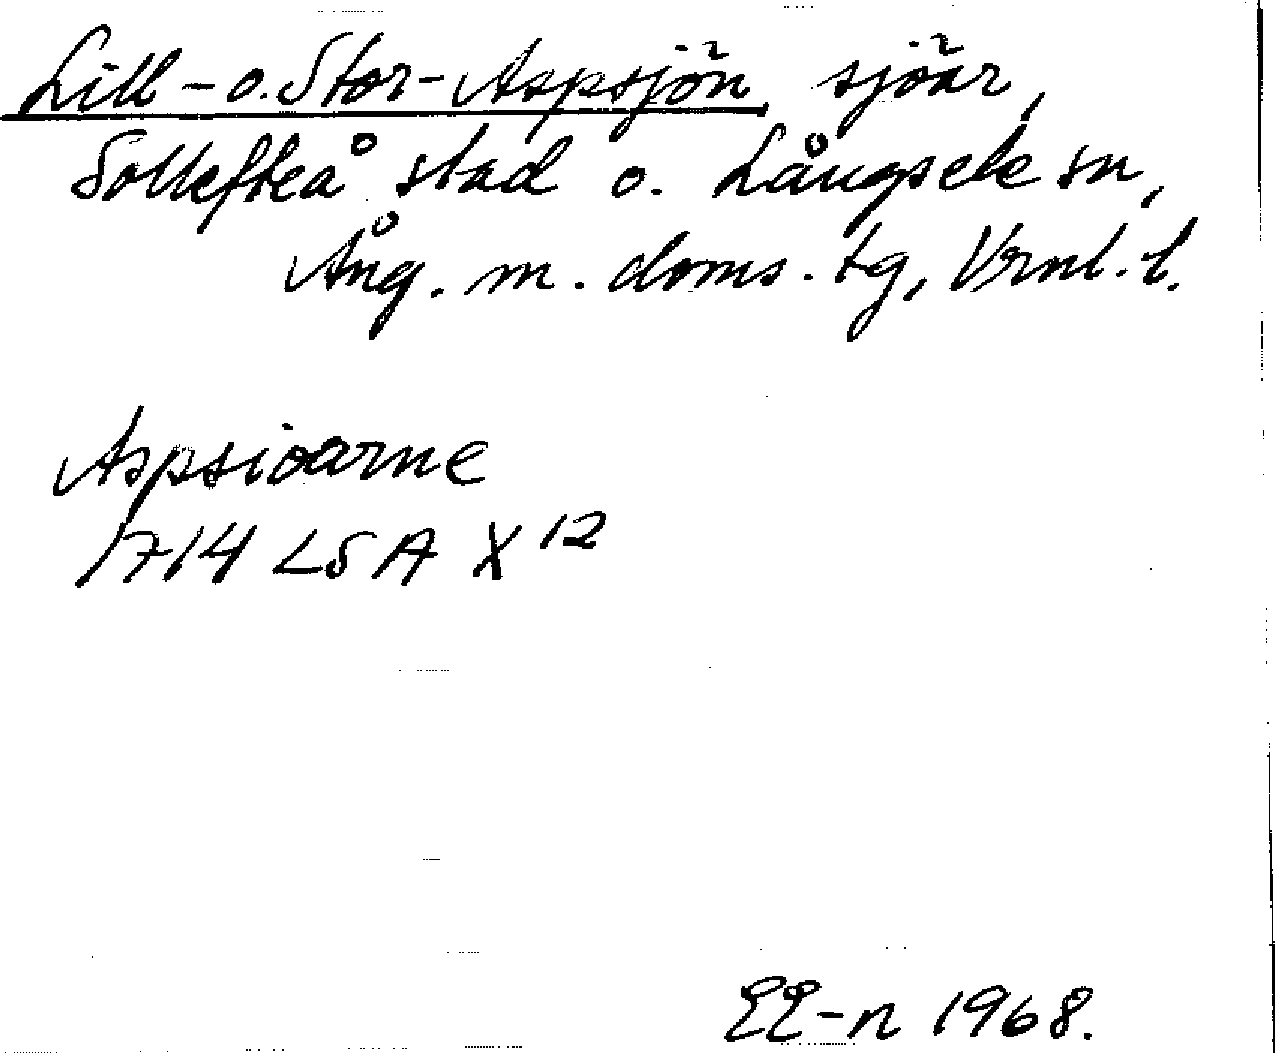 Lill- o. Stor-Aspsjön, sjöar,
Sollefteå stad o. Långsele sn,
Ång. m. doms. tg, Vrnl. l.
Aspsioarne
1714 LSA X 12
EE-n 1968.